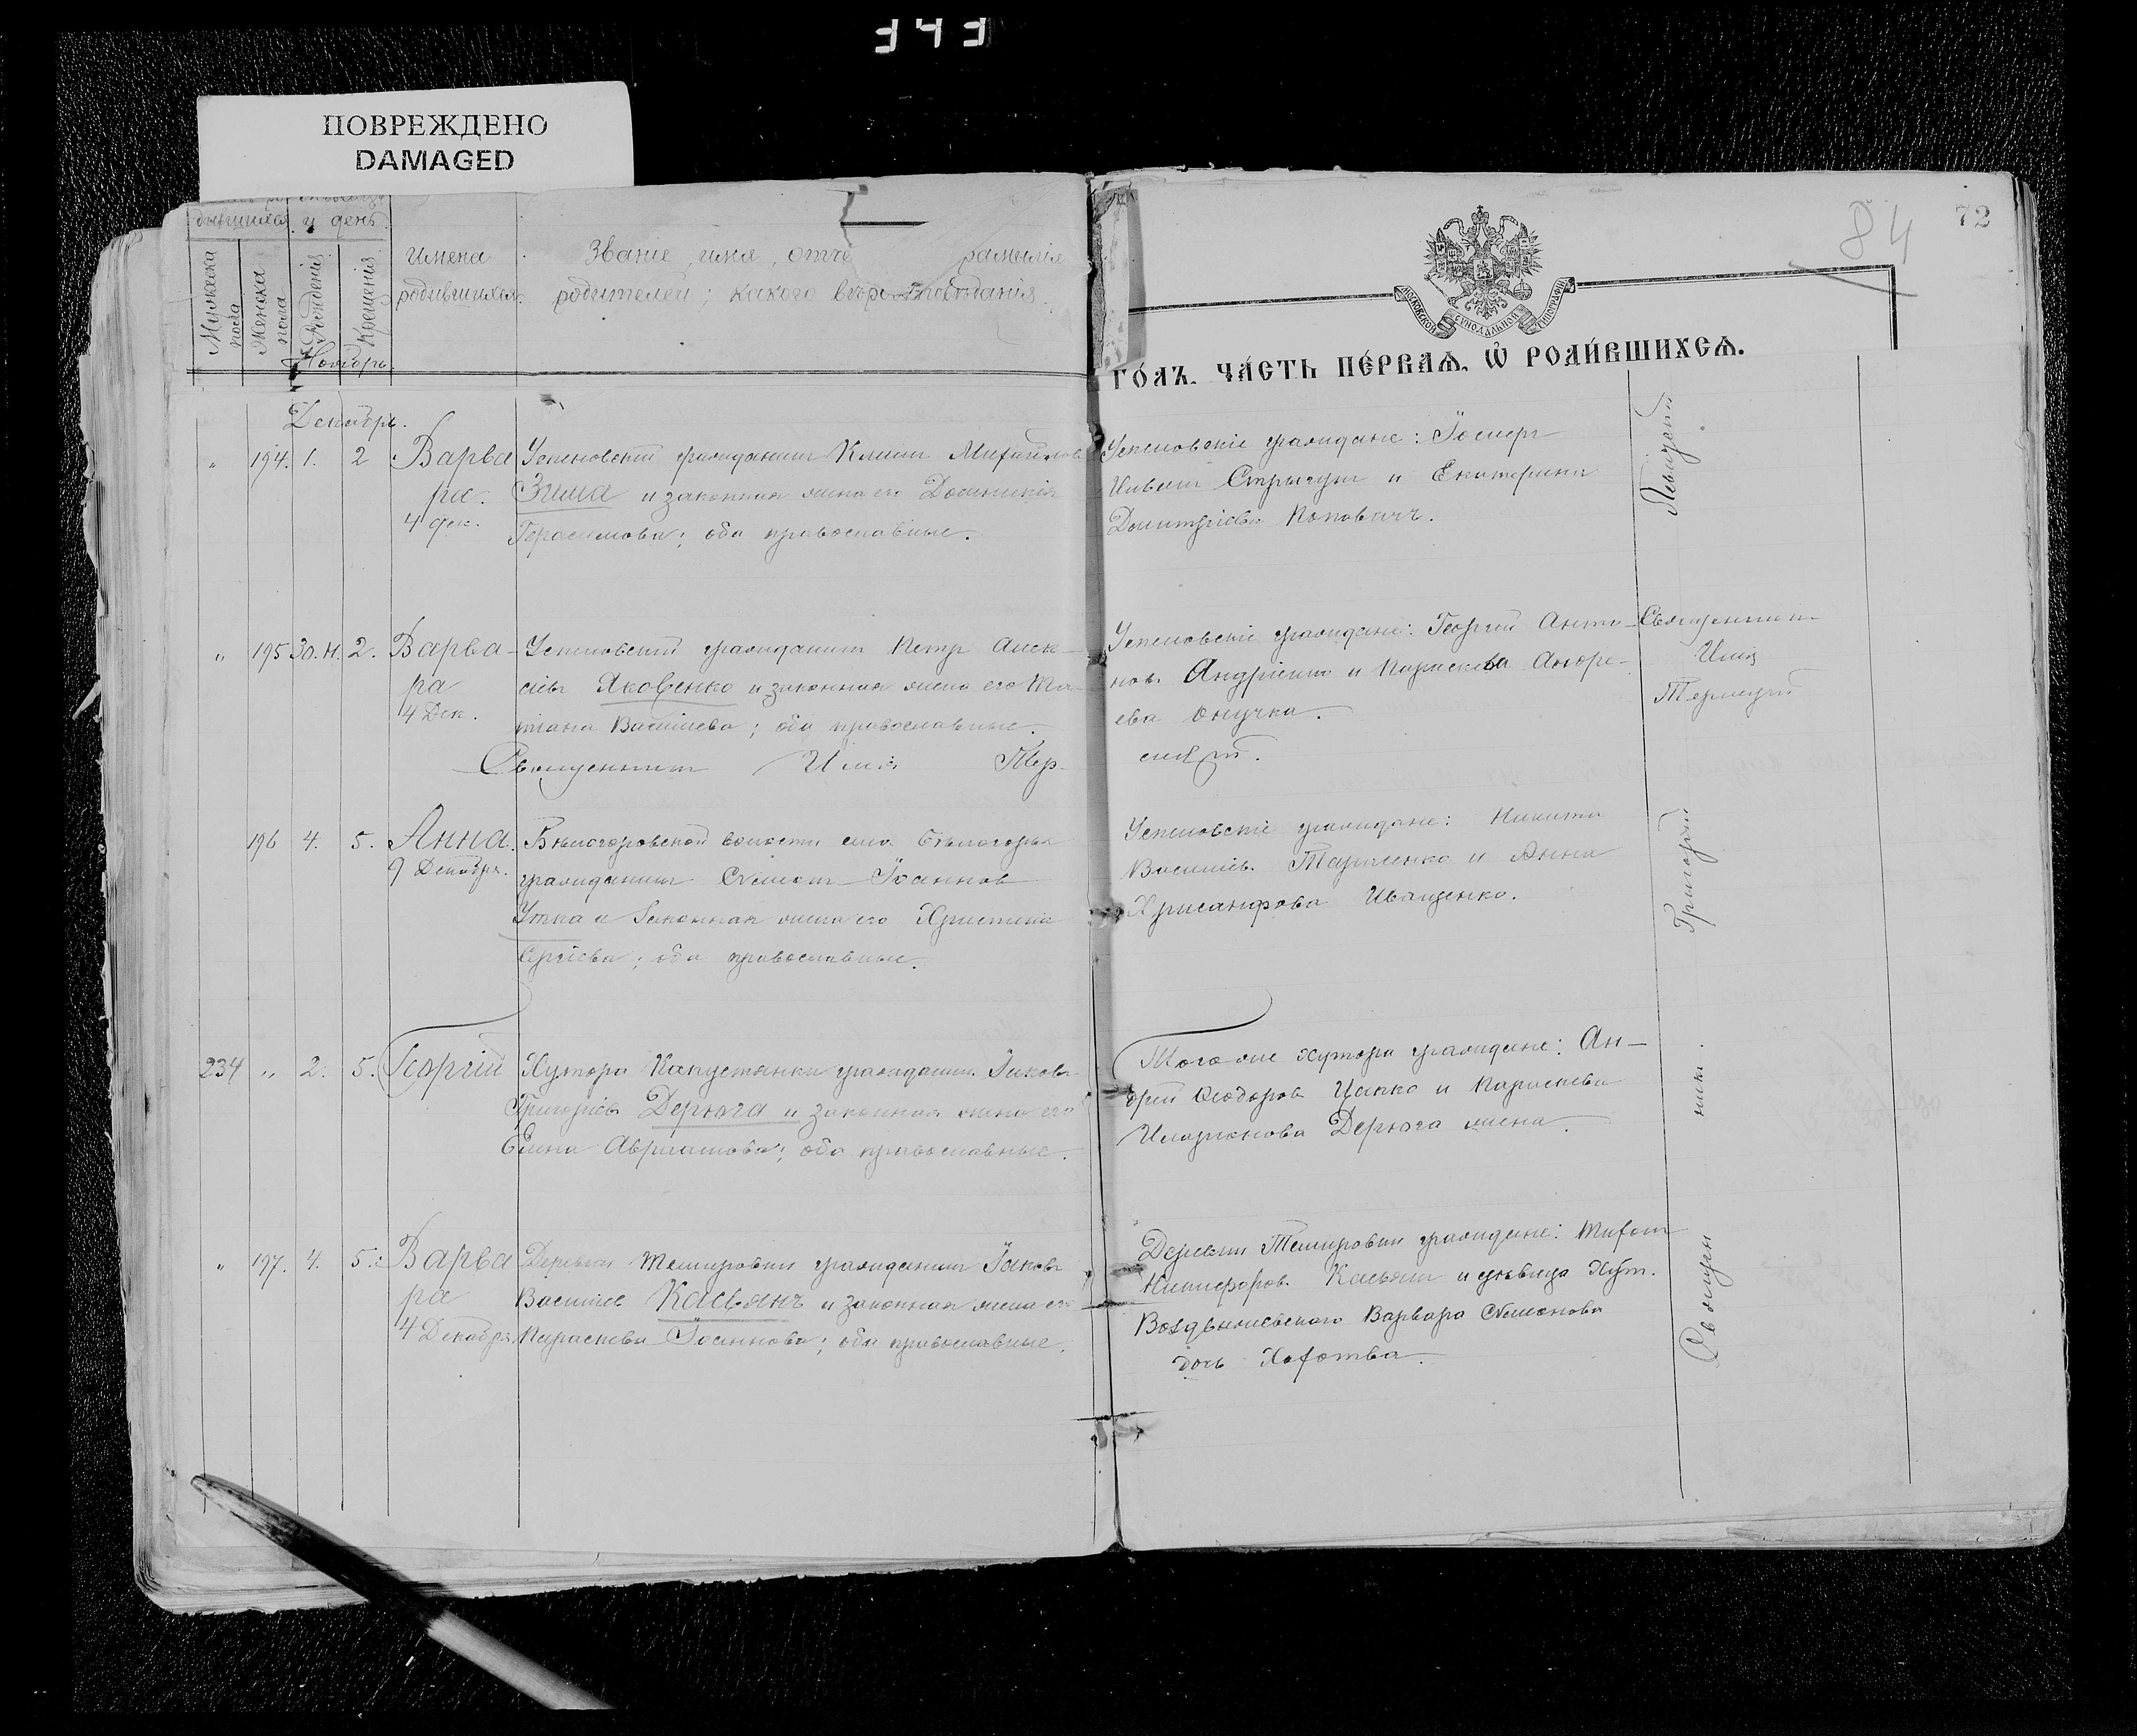 343
ПОВРЕЖДЕНО
DAMAGED
84
72
бывшихся и день
Мужеска пола
Женска пола
Рожденія
Крещенія
Имена
родившихся.
Званіе, имя, отче фамилія
родителей; какого вѣроисповѣданія.
Ноябрь.
МОСКОВСКОЙ СѴНОДАЛЬНОЙ ТИПОГРАФІИ
ГО́ДЪ. ЧА́СТЬ ПЕ́РВАѦ, Ѡ҆ РОДИ́ВШИХСѦ.
Декабрь.
„ 194. 1. 2 Варва
ра.
4 дек.
Успеновский гражданин Климент Михайлов
Зима и законная жена его Домникія
Герасимова; оба православные.
Успеновскіе граждане: Іосиф
Стрыгун и Екатерина
Димитріева Попович.
„ 195 30.Н. 2. Варва-
ра
4 Дек.
Успеновский гражданин Петр Алек-
сіев Яковенко и законная жена его Та-
тіана Василиева; оба православные.
Священник Илія Тер-
Успеновскіе граждане: Георгий Анто-
нов Андріенко и Параскева Андре-
ева Онучка.
Священник
Илія
196 4. 5. Анна.
9 Декабря.
Бѣлогоровской волости села Бѣлогорья
гражданин Сѵмеон Іоаннов
Утка и законная жена его Христина
Сергіева; оба православные.
Успеновскіе граждане: Никита
Василиев Тарасенко и Анна
Хрисанфова Иващенко.
Григорий
234 „ 2. 5. Георгій
Хутора Капустянки гражданин Іаков
Григоріев Дерюга и законная жена его
Елена Авраамова; оба православные.
Того-же хутора граждане: Ан-
дрей Феодоров Цапко и Параскева
Иларионова Дерюга жена.
„ 197. 4. 5. Варва
ра
4 Декабря.
Деревни Темировки гражданин Іаков
Василиев Касьянъ и законная жена его
Параскева Іоаннова; оба православные.
Деревни Темировки граждане:
Никифоров Касьян и дѣвица Хут.
Воздвижевского Варвара Сѵмеонова
дочь
Священ
ник